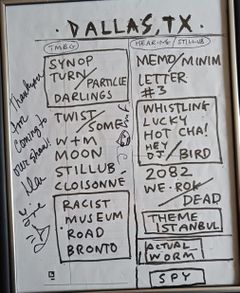 · DALLAS, TX ·
TMBG
SYNOP
TURN/PARTICLE
DARLINGS
TWIST/SOME
W+M
MOON
STILLUB
CLOISONNE
RACIST
MUSEUM
ROAD
BRONTO
HEARING/STILLUB
MEMO/MINIM
LETTER
#3
WHISTLING
LUCKY
HOT CHA!
HEY
DJ/BIRD
2082
WE·ROK/DEAD
THEME
ISTANBUL
ACTUAL
WORM
SPY
Thank you
for
coming to
our show!